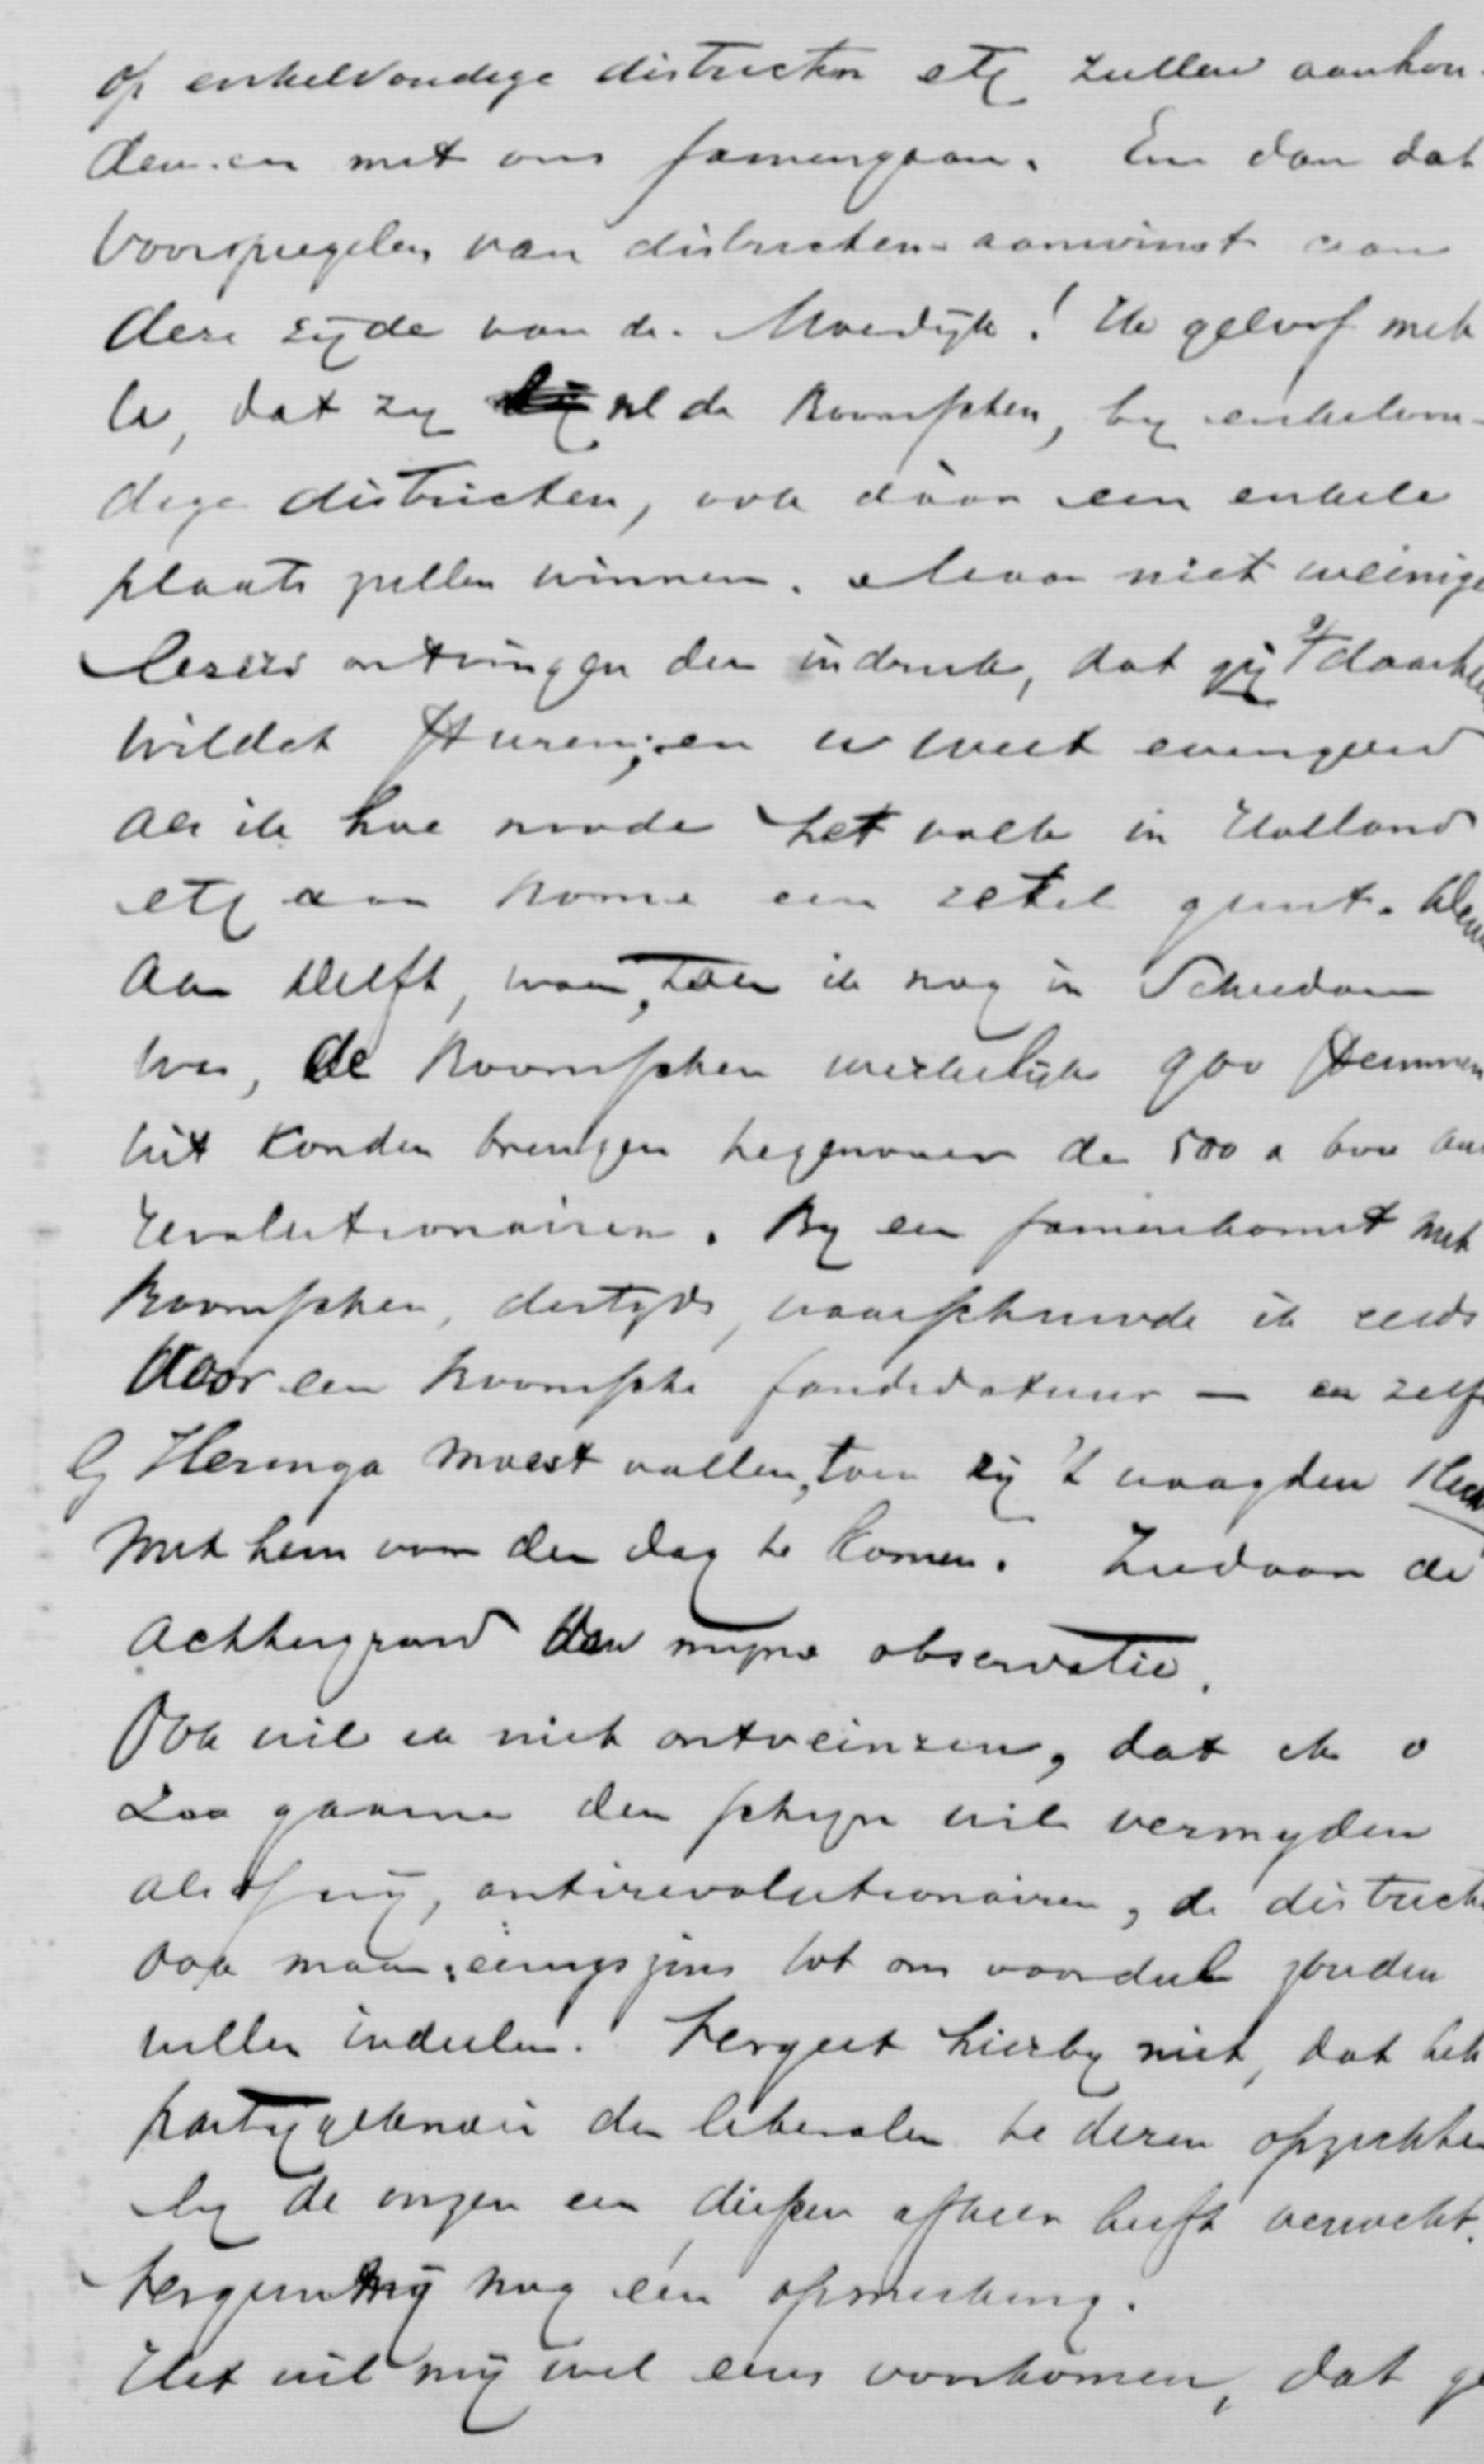 op enkelvoudige districten etc zullen aankon-
den en met ons samengaan. En dan dat
voorspiegelen van districten-aanwinst aan
deze zyde van de Moerdijk! Ik geloof met
U, dat zy de Roomschen, by enkelvou-
dige districten, ook dáár een enkele
plaats zullen winnen. Maar niet weinige
lezers ontvingen den indruk, dat gij
wildet sturen; en U weet evengoed
als ik hoe noode het volk in Holland
etc aan Rome een zetel gunt. Denk
aan Delft, waar, toen ik nog in Schiedam
was, de Roomschen werkelijk 900 stemmen
uit konden brengen tegenover de 500 a 600 anti
revolutionairen. By een samenkomst met
Roomschen, destyds, waarschuwde ik reeds
voor een Roomsche candidatuur — en zelfs
Heringa moest vallen, toen zij 't waagden
met hem voor den dag te komen. Ziedaar de
achtergrond van myne observatie.
Ook wil ik niet ontveinzen, dat ik
zoo gaarne den schyn wil vermyden
alsof wij, antirevolutionairen, de districten
ook maar eenigszins tot ons voordeel zouden
willen indeelen. Vergeet hierby niet, dat het
partygeknoei der liberalen te dezen opzichte
by de onzen een diepen afkeer heeft verwekt.
Vergun mij nog één opmerking.
Het wil mij wel eens voorkomen, dat ge